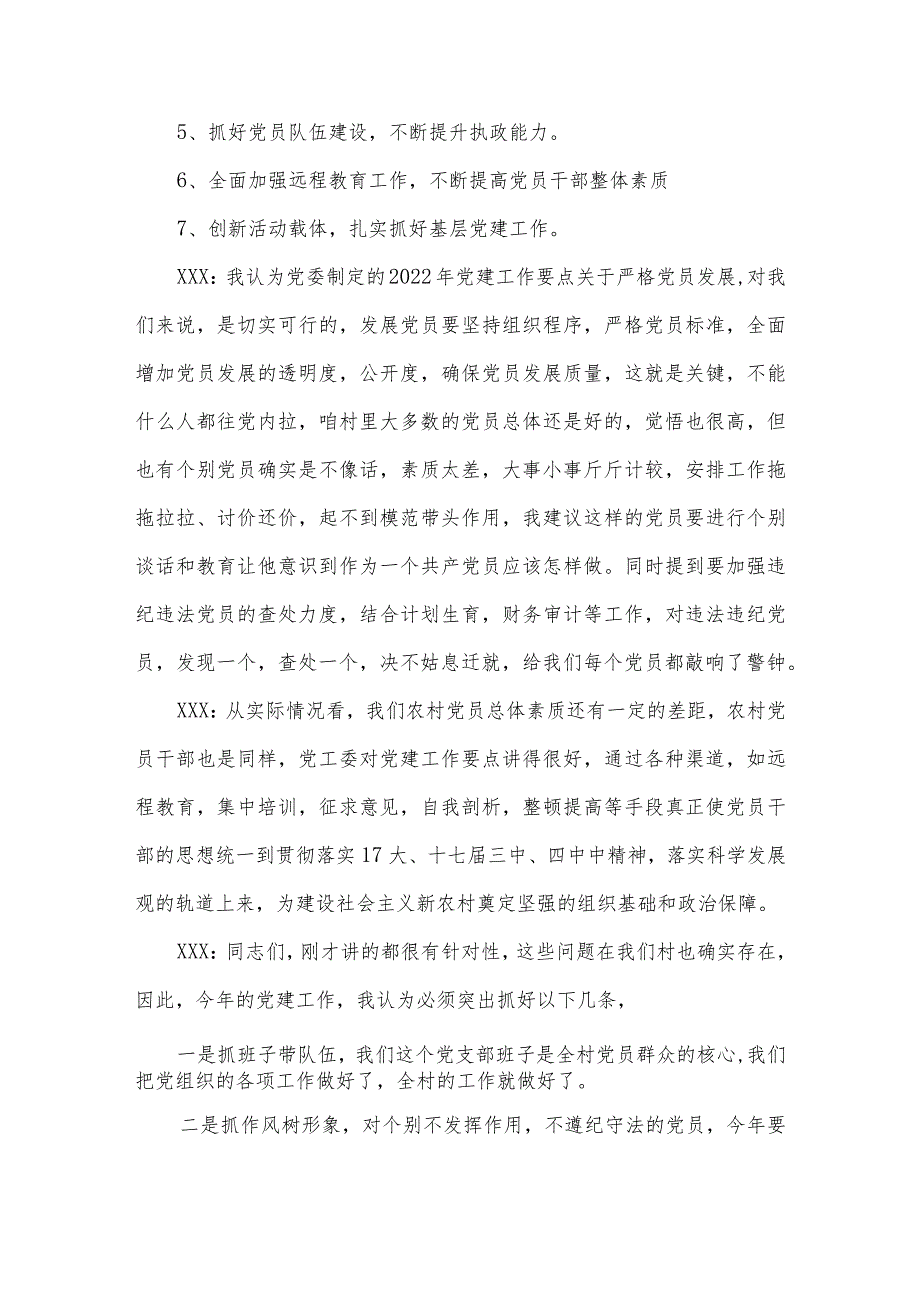 5、抓好党员队伍建设，不断提升执政能力。
6、全面加强远程教育工作，不断提高党员干部整体素质
7、创新活动载体，扎实抓好基层党建工作。
XXX：我认为党委制定的2022年党建工作要点关于严格党员发展,对我
们来说，是切实可行的，发展党员要坚持组织程序，严格党员标准，全面
增加党员发展的透明度，公开度，确保党员发展质量，这就是关键，不能
什么人都往党内拉，咱村里大多数的党员总体还是好的，觉悟也很高，但
也有个别党员确实是不像话，素质太差，大事小事斤斤计较，安排工作拖
拖拉拉、讨价还价，起不到模范带头作用，我建议这样的党员要进行个别
谈话和教育让他意识到作为一个共产党员应该怎样做。同时提到要加强违
纪违法党员的查处力度，结合计划生育，财务审计等工作，对违法违纪党
员，发现一个，查处一个，决不姑息迁就，给我们每个党员都敲响了警钟。
XXX：从实际情况看，我们农村党员总体素质还有一定的差距，农村党
员干部也是同样，党工委对党建工作要点讲得很好，通过各种渠道，如远
程教育，集中培训，征求意见，自我剖析，整顿提高等手段真正使党员干
部的思想统一到贯彻落实17大、十七届三中、四中中精神，落实科学发展
观的轨道上来，为建设社会主义新农村奠定坚强的组织基础和政治保障。
XXX：同志们，刚才讲的都很有针对性，这些问题在我们村也确实存在，
因此，今年的党建工作，我认为必须突出抓好以下几条，
一是抓班子带队伍，我们这个党支部班子是全村党员群众的核心,我们
把党组织的各项工作做好了，全村的工作就做好了。
二是抓作风树形象，对个别不发挥作用，不遵纪守法的党员，今年要